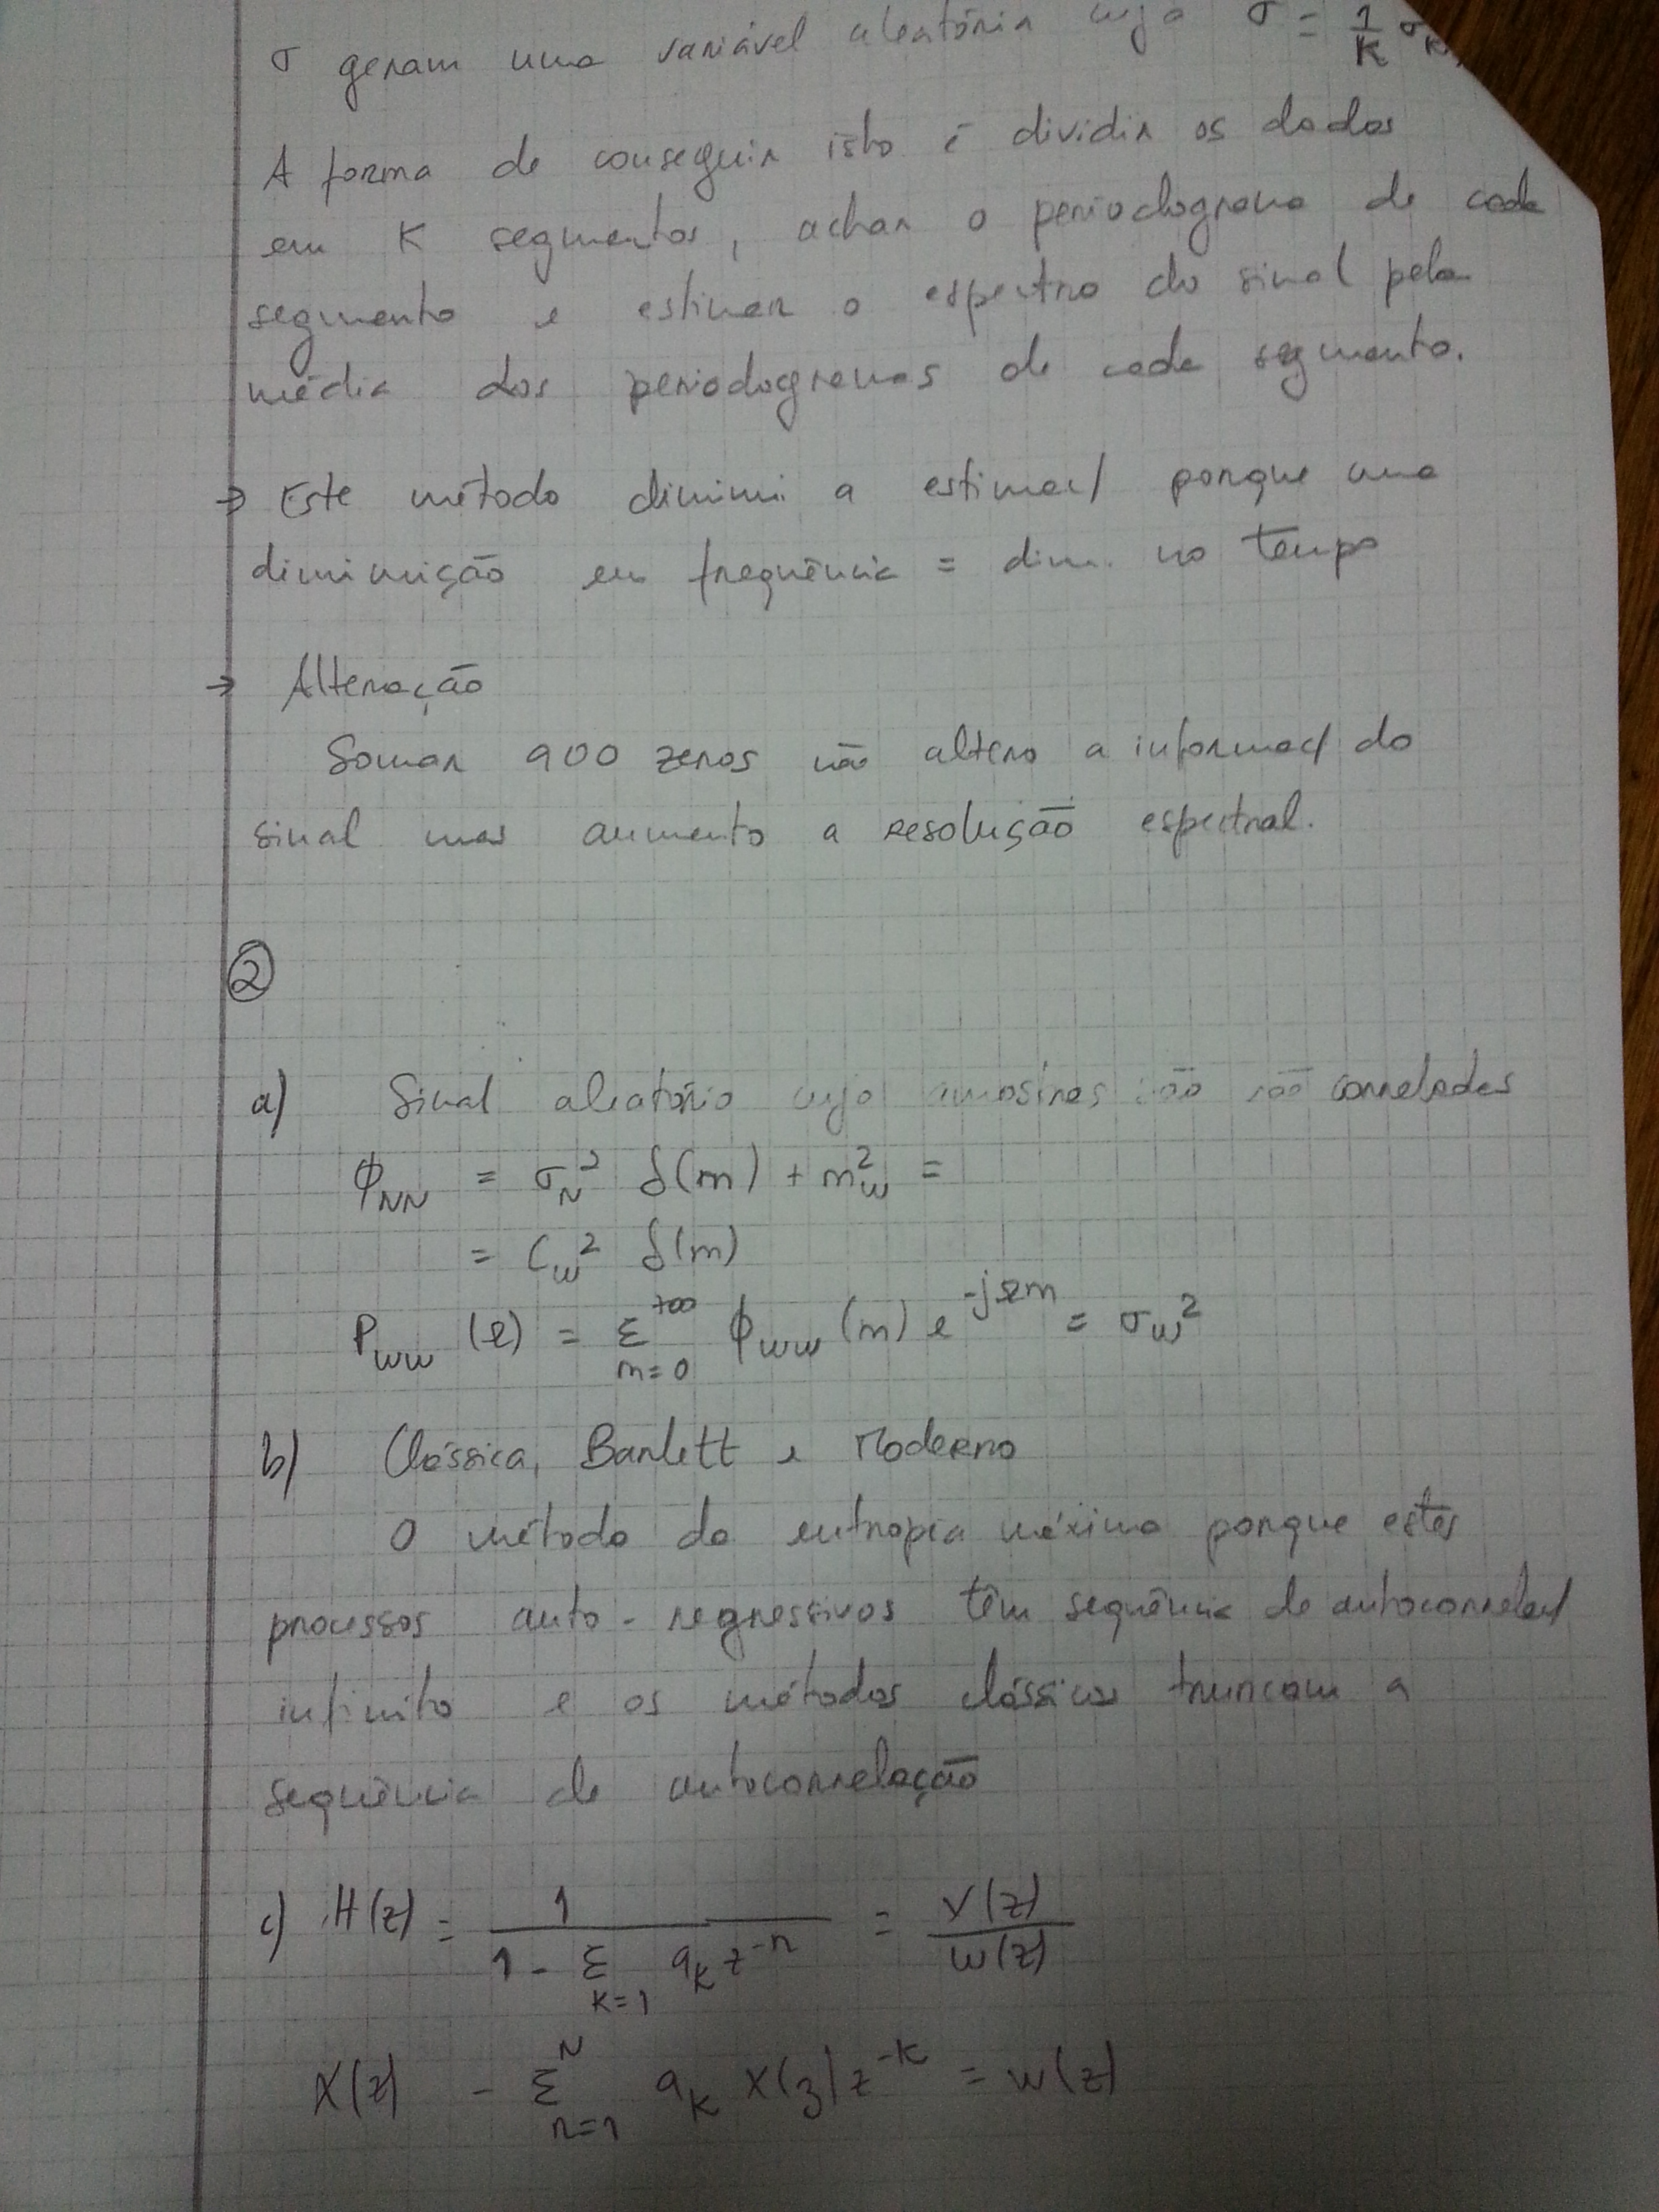 σ geram uma variável aleatória cujo σ = 1/K σ
A forma de conseguir isto é dividir os dados
em K segmentos, achar o periodograma de cada
segmento e estimar o espectro do sinal pela
média dos periodogramas de cada segmento.
→ Este método diminui a estimaç/ porque uma
diminuição em frequência = dim. no tempo
→ Alteração
Somar 900 zeros não altera a informaç/ do
sinal mas aumento a resolução espectral.
②
a) Sinal aleatório cujo amostras são não correladas
ϕNN = σN² δ(m) + mw² =
= Cw² δ(m)
Pww (Ω) = Σ m=0 +∞ ϕww (m) e^-jΩm = σw²
b) Clássica, Barlett e Moderno
O método da entropia máxima porque estes
processos auto-regressivos têm sequência de autocorrelaç/
infinito e os métodos clássicos truncam a
sequência de autocorrelação
c) H(z) = 1 / (1 - Σ k=1 ak z^-n) = Y(z) / W(z)
X(z) - Σ n=1 N ak X(z) z^-k = W(z)